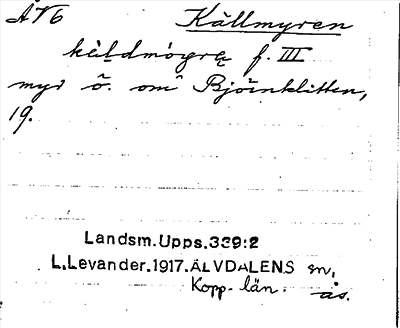 ÅV6 Källmyren
f. III
myr ö. om Björnklitten,
19.
Landsm.Upps.339:2
L.Levander.1917.ÄLVDALENS sn,
Kopp. län. ås.